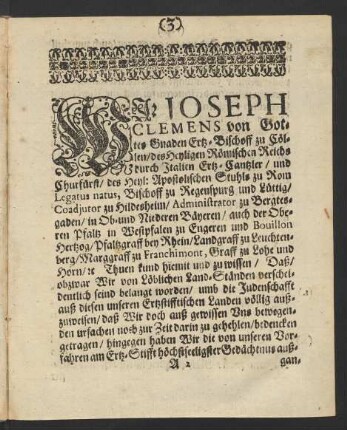 (3)
Wir JOSEPH
CLEMENS von Got-
tes Gnaden Ertz-Bischoff zu Cöl-
len / des Heyligen Römischen Reichs
durch Italien Ertz-Cantzler / und
Churfürst / des Heyl: Apostolischen Stuhls zu Rom
Legatus natus, Bischoff zu Regenspurg und Lüttig /
Coadjutor zu Hildesheim / Administrator zu Bergtes-
gaden / in Ob- und Niederen Bäyeren / auch der Obe-
ren Pfaltz in Westpfalen zu Engeren und Bouillon
Hertzog / Pfaltzgraff bey Rhein / Landgraff zu Leuchten-
berg / Marggraff zu Franchimont, Graff zu Lohe und
Horn / ꝛc Thuen kund hiemit und zu wissen / Daß /
obzwar Wir von Löblichen Land-Ständen verschei-
dentlich seind belangt worden / umb die Judenschafft
auß diesen unseren Ertzstifftischen Landen völlig auß-
zuweisen / daß Wir doch auß gewissen Uns bewogen-
den ursachen noch zur Zeit darin zu gehehlen / bedencken
getragen / hingegen haben Wir die von unseren Vor-
fahren am Ertz-Stifft höchstseeligster Gedächtnus auß-
A 2
gan-